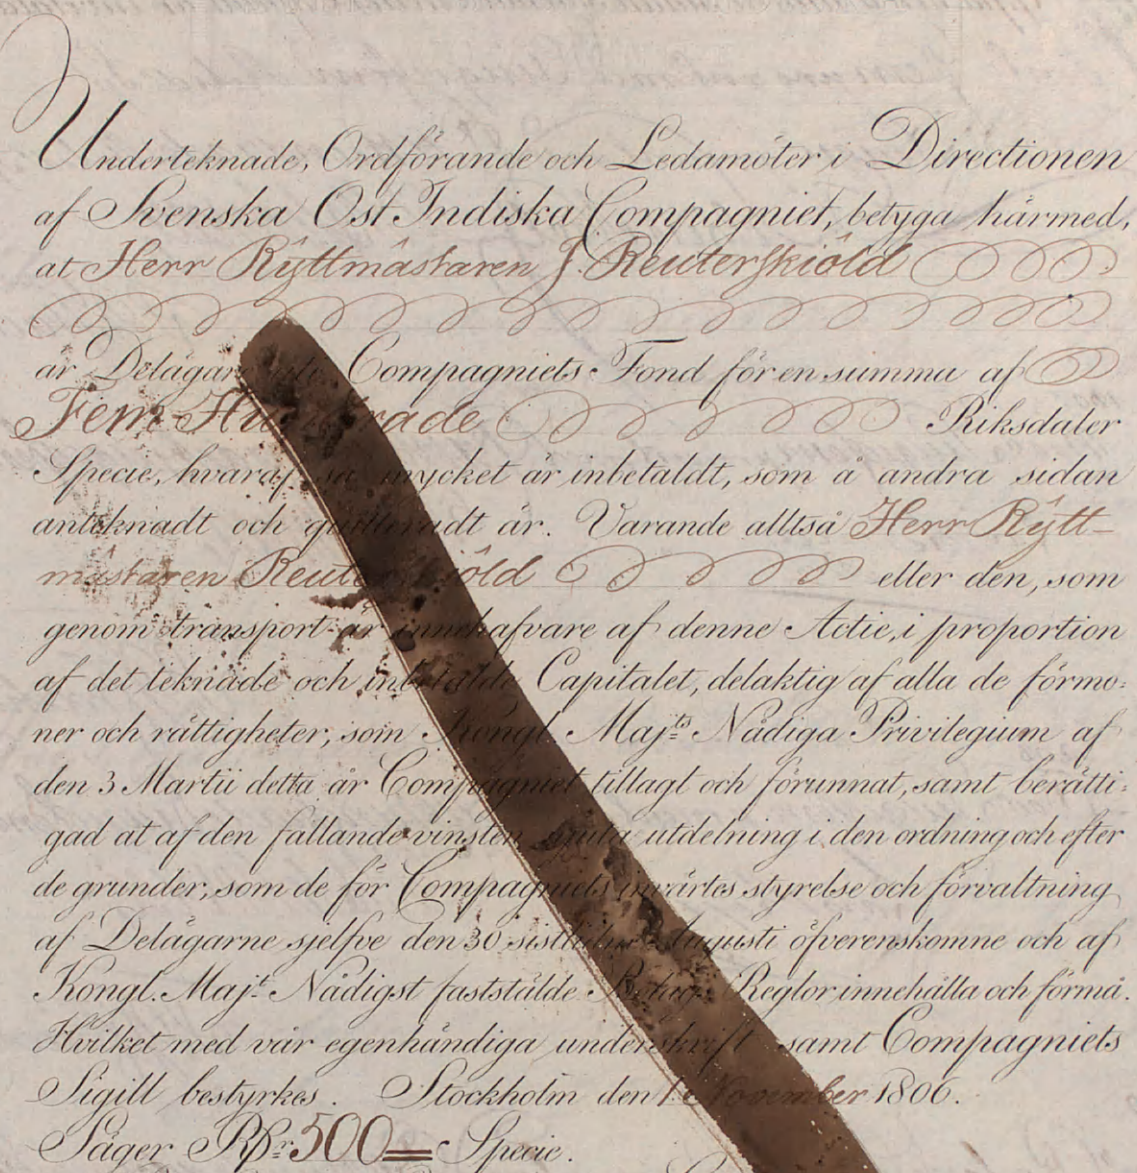 Underteknade, Ordförande och Ledamöter i Directionen
af Svenska Ost Indiska Compagniet, betyga härmed,
at Herr Ryttmästaren J. Reuterskiöld
är Delägare uti Compagniets Fond för en summa af
Fem Hundrade Riksdaler
Specie, hvaraf så mycket är inbetaldt, som å andra sidan
anteknadt och qvitteradt är. Varande alltså Herr Rytt-
mästaren Reuterskiöld eller den, som
genom transport är innehafvare af denne Actie, i proportion
af det teknade och inbetaldte Capitalet, delaktig af alla de förmo-
ner och rättigheter, som Kongl. Maj:ts Nådiga Privilegium af
den 3 Martii detta år Compagniet tillagt och förunnat, samt berätti-
gad at af den fallande vinsten njuta utdelning i den ordning och efter
de grunder, som de för Compagniets invärtes styrelse och förvaltning
af Delägarne sjelfve den 30 sistledne Augusti öfverenskomne och af
Kongl. Maj:t Nådigst fastställde Reglor innehålla och förmå.
Hvilket med vår egenhändiga underskrift samt Compagniets
Sigill bestyrkes. Stockholm den 1 November 1806.
Säger Rdr 500 Specie.